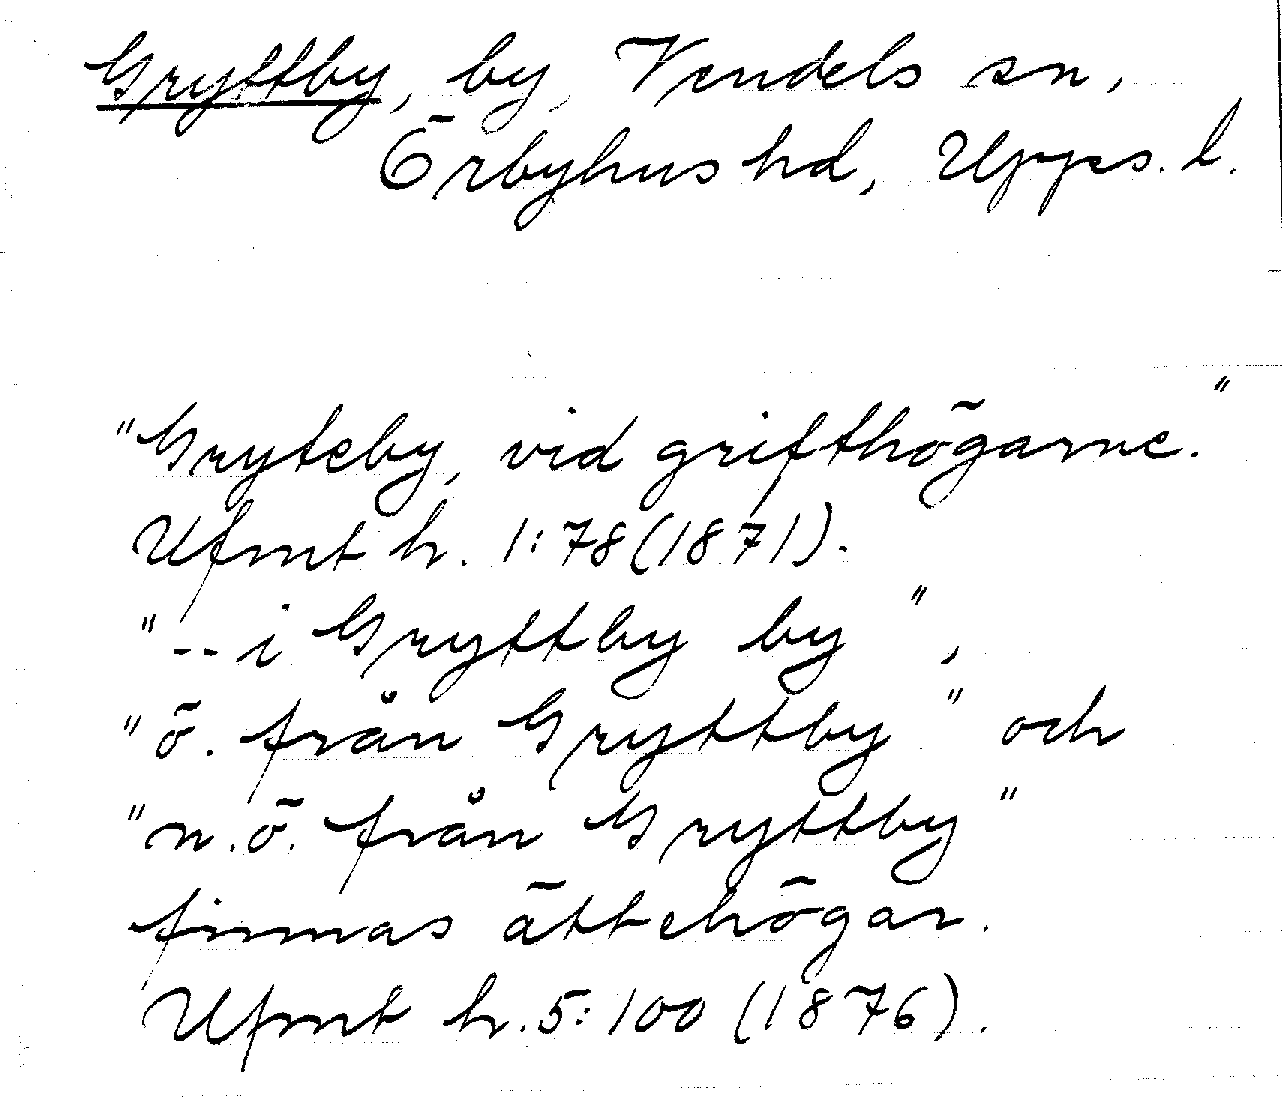 Gryttby, by, Vendels sn,
Örbyhus hd, Upps. l.
"Gryteby, vid grifthögarne."
Ufmt h. 1:78 (1871).
"-- i Gryttby by",
"ö. från Gryttby" och
"n.ö. från Gryttby"
finnas ättehögar.
Ufmt h. 5:100 (1876).